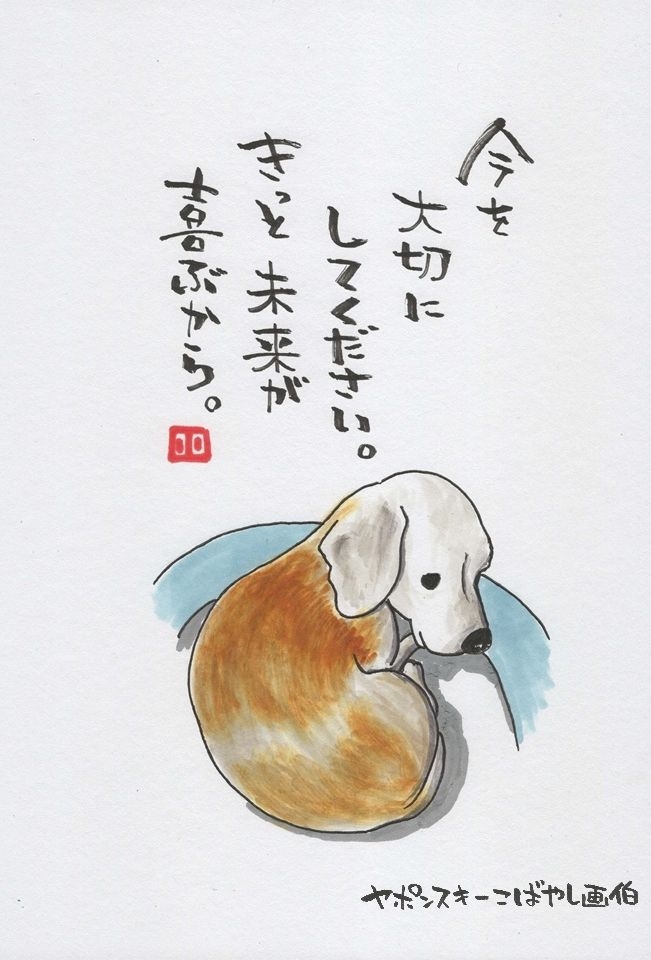 今を
大切に
してください。
きっと未来が
喜ぶから。
ヤポンスキーこばやし画伯